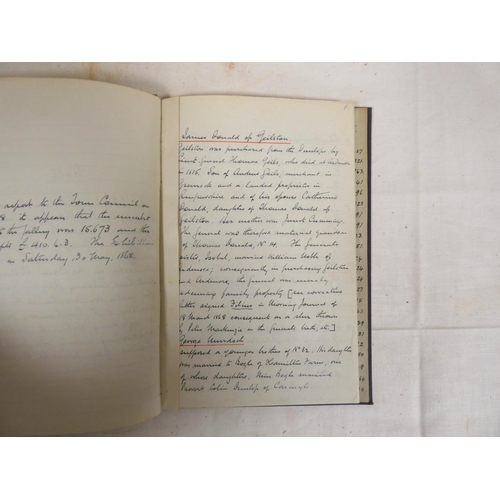 report to the Town Council on
8 it appear that the number
to the gallery was 15673 and the
£410.6.3. The Exhibition
on Saturday, 30 May, 1868.
James Donald of Geilston.
Geilston was purchased from the Dunlops by
Lieut. General Thomas Geils, who died at
in 1815. Son of Andrew Geils, merchant in
Greenock and a landed proprietor in
Dumbartonshire and of his spouse Catherine
Donald, daughter of Thomas Donald of
Geilston. Her mother was Janet Cumming.
The General was therefore maternal grandson
of Thomas Donald, No 14. The General's
sister, Isabel, married William Noble of
Ardmore; consequently in purchasing Geilston
and Ardmore, the General was merely
redeeming family property [See
letter signed in Morning Journal of
18 March 1868 consequent on a slur thrown
by Peter Mackenzie on the General's birth, etc.]
George Murdoch
supposed a younger brother of No 32. His daughter
was married to Bogle of Hamilton Farm, one
of whose daughters, Miss Bogle married
Robert Colin Dunlop of Carmyle.